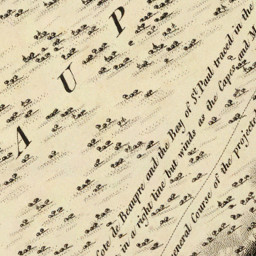 A U P
Cote de Beaupre and the Bay of St Paul traced in the
in a right line but winds as the Capes and M
General Course of the projec